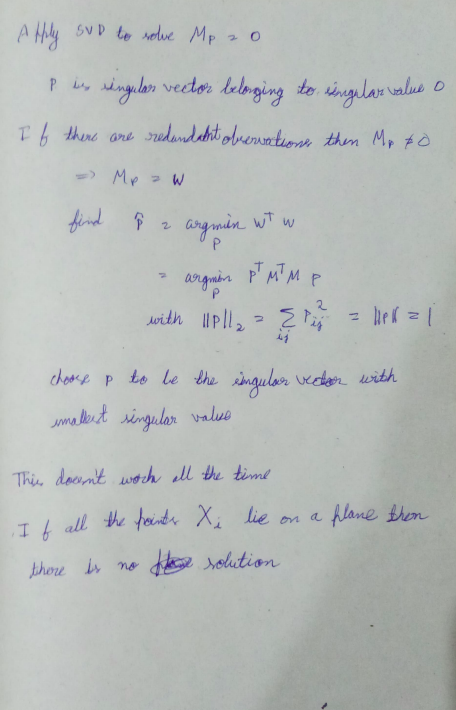 Apply SVD to solve Mp = 0
p is singular vector belonging to singular value 0
If there are redundant observations then Mp ≠ 0
=> Mp = W
find p̂ = argmin_p W^T W
= argmin_p P^T M^T M p
with ||p||_2 = Σ_ij p_ij^2 = ||p|| = 1
choose p to be the singular vector with
smallest singular value
This doesn't work all the time
If all the points X_i lie on a plane then
there is no solution